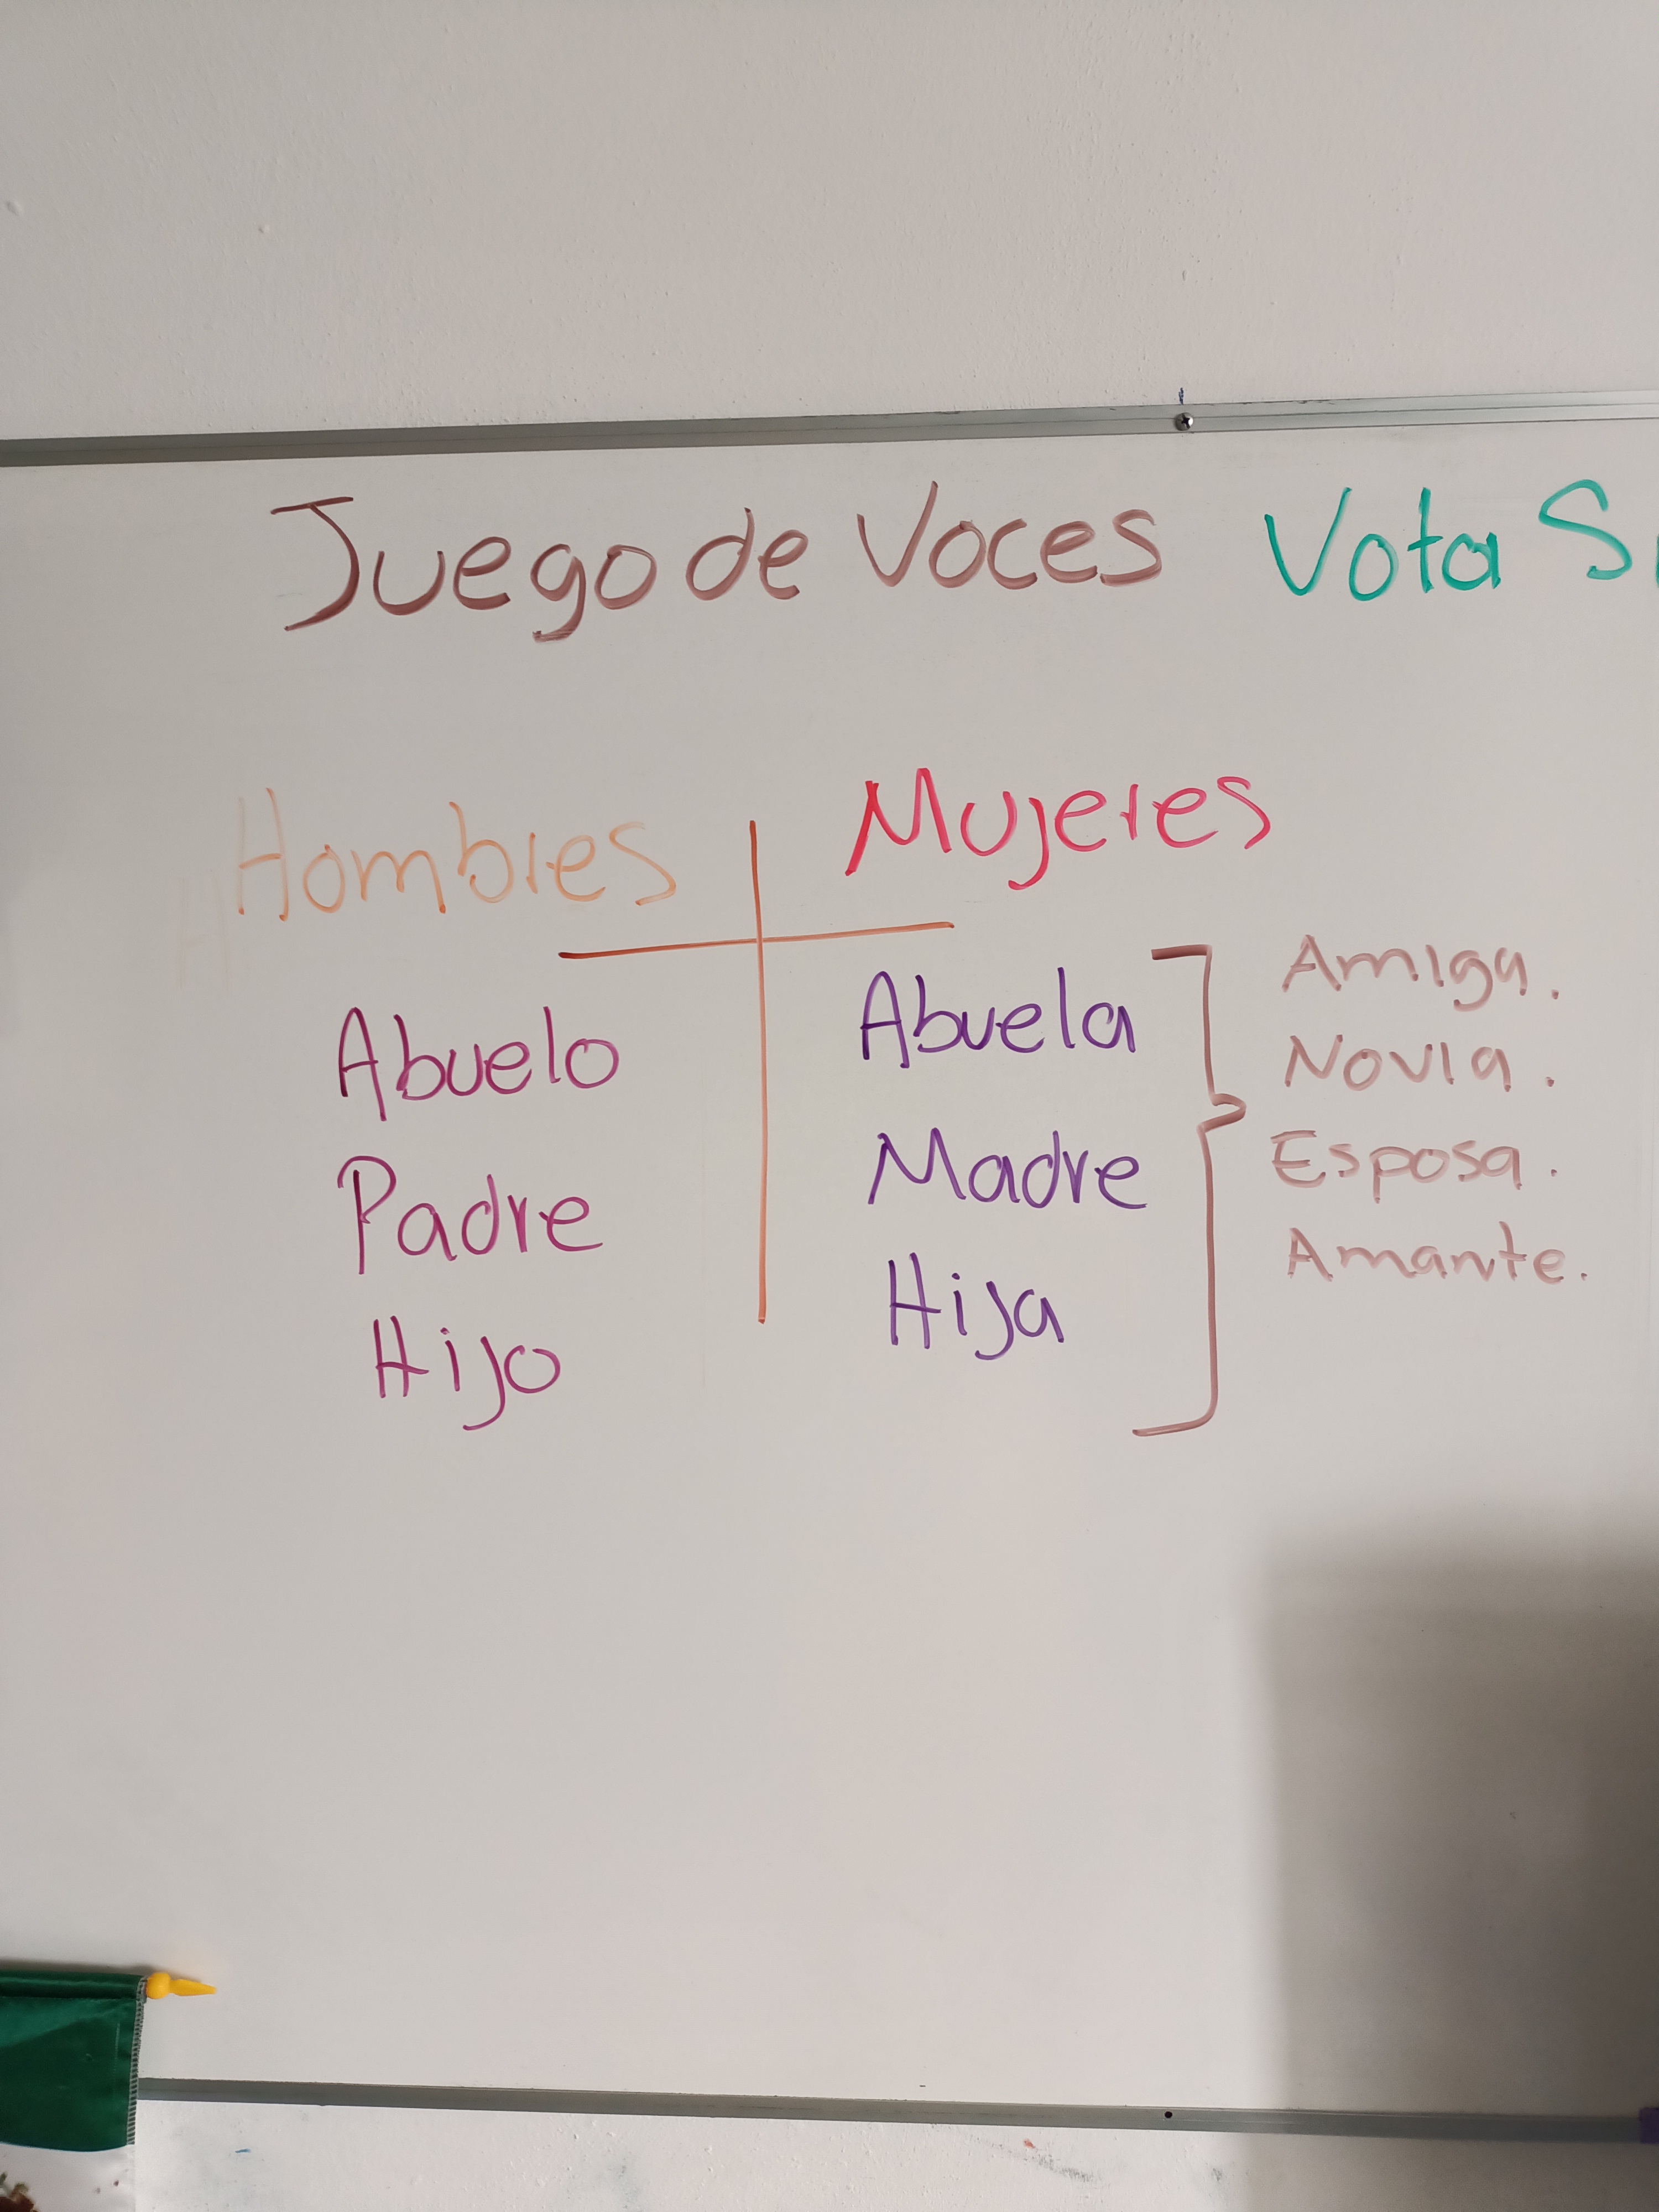 Juego de Voces Vota
Hombres Mujeres
Abuelo
Padre
Hijo
Abuela
Madre
Hija
Amiga.
Novia.
Esposa.
Amante.